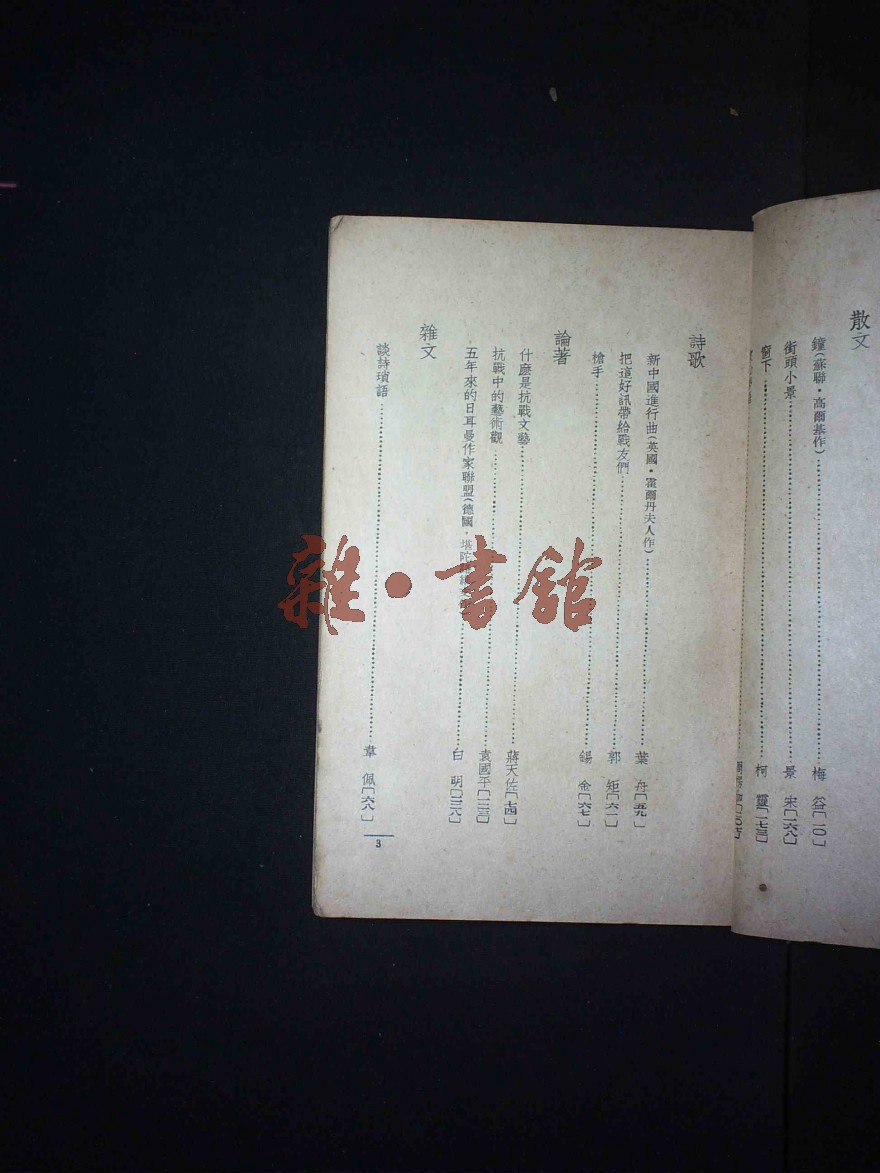 散文
鐘(蘇聯·高爾基作)……梅 益[一一〇]
街頭小景……景 宋[一六八]
窗下……柯 靈[一七三]
詩歌
新中國進行曲(英國·霍爾丹夫人作)……葉 舟[五九]
把這好訊帶給戰友們……郭 矩[六一]
槍手……錫 金[六七]
論著
什麼是抗戰文藝……蔣天佐[七四]
抗戰中的藝術觀……袁國平[二三]
五年來的日耳曼作家聯盟(德國·……白 明[三八]
雜文
談詩瑣語……韋 佩[六八]
3
雜·書館